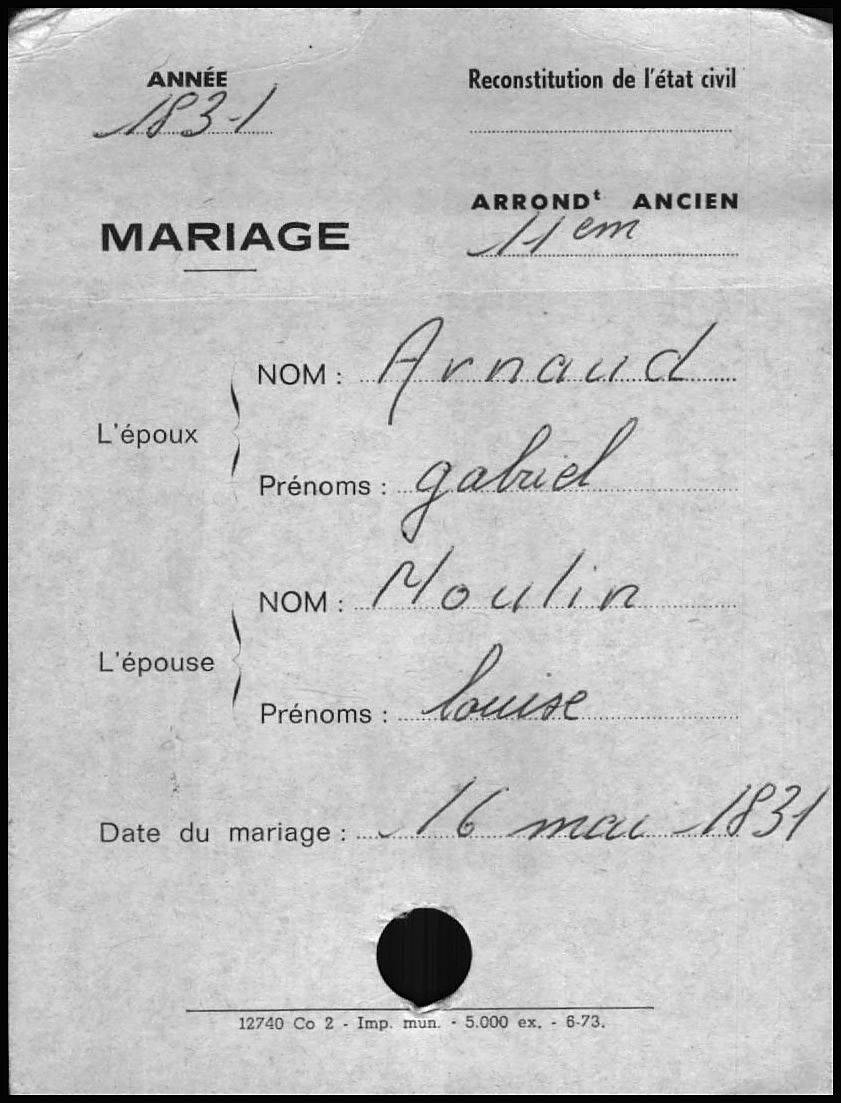 ANNÉE
1831
Reconstitution de l'état civil
ARRONDᵗ ANCIEN
11em
MARIAGE
L'époux
NOM : Arnaud
Prénoms : gabriel
L'épouse
NOM : Moulin
Prénoms : louise
Date du mariage : 16 mai 1831
12740 Co 2 - Imp. mun. - 5.000 ex. - 6-73.